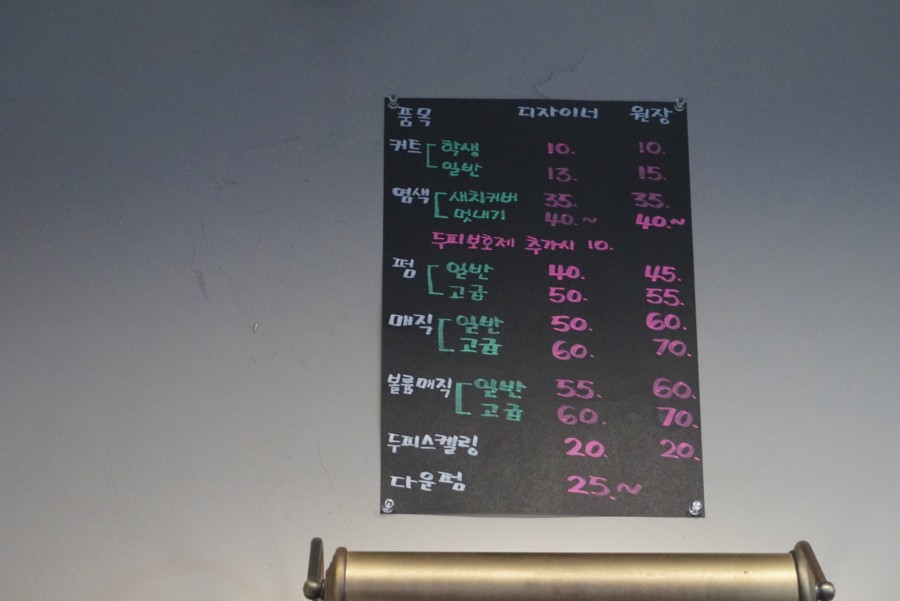 품목 디자이너 원장
커트 학생 10. 10.
일반 13. 15.
염색 새치커버 35. 35.
멋내기 40.~ 40.~
두피보호제 추가시 10.
펌 일반 40. 45.
고급 50. 55.
매직 일반 50. 60.
고급 60. 70.
볼륨매직 일반 55. 60.
고급 60. 70.
두피스켈링 20. 20.
다운펌 25.~